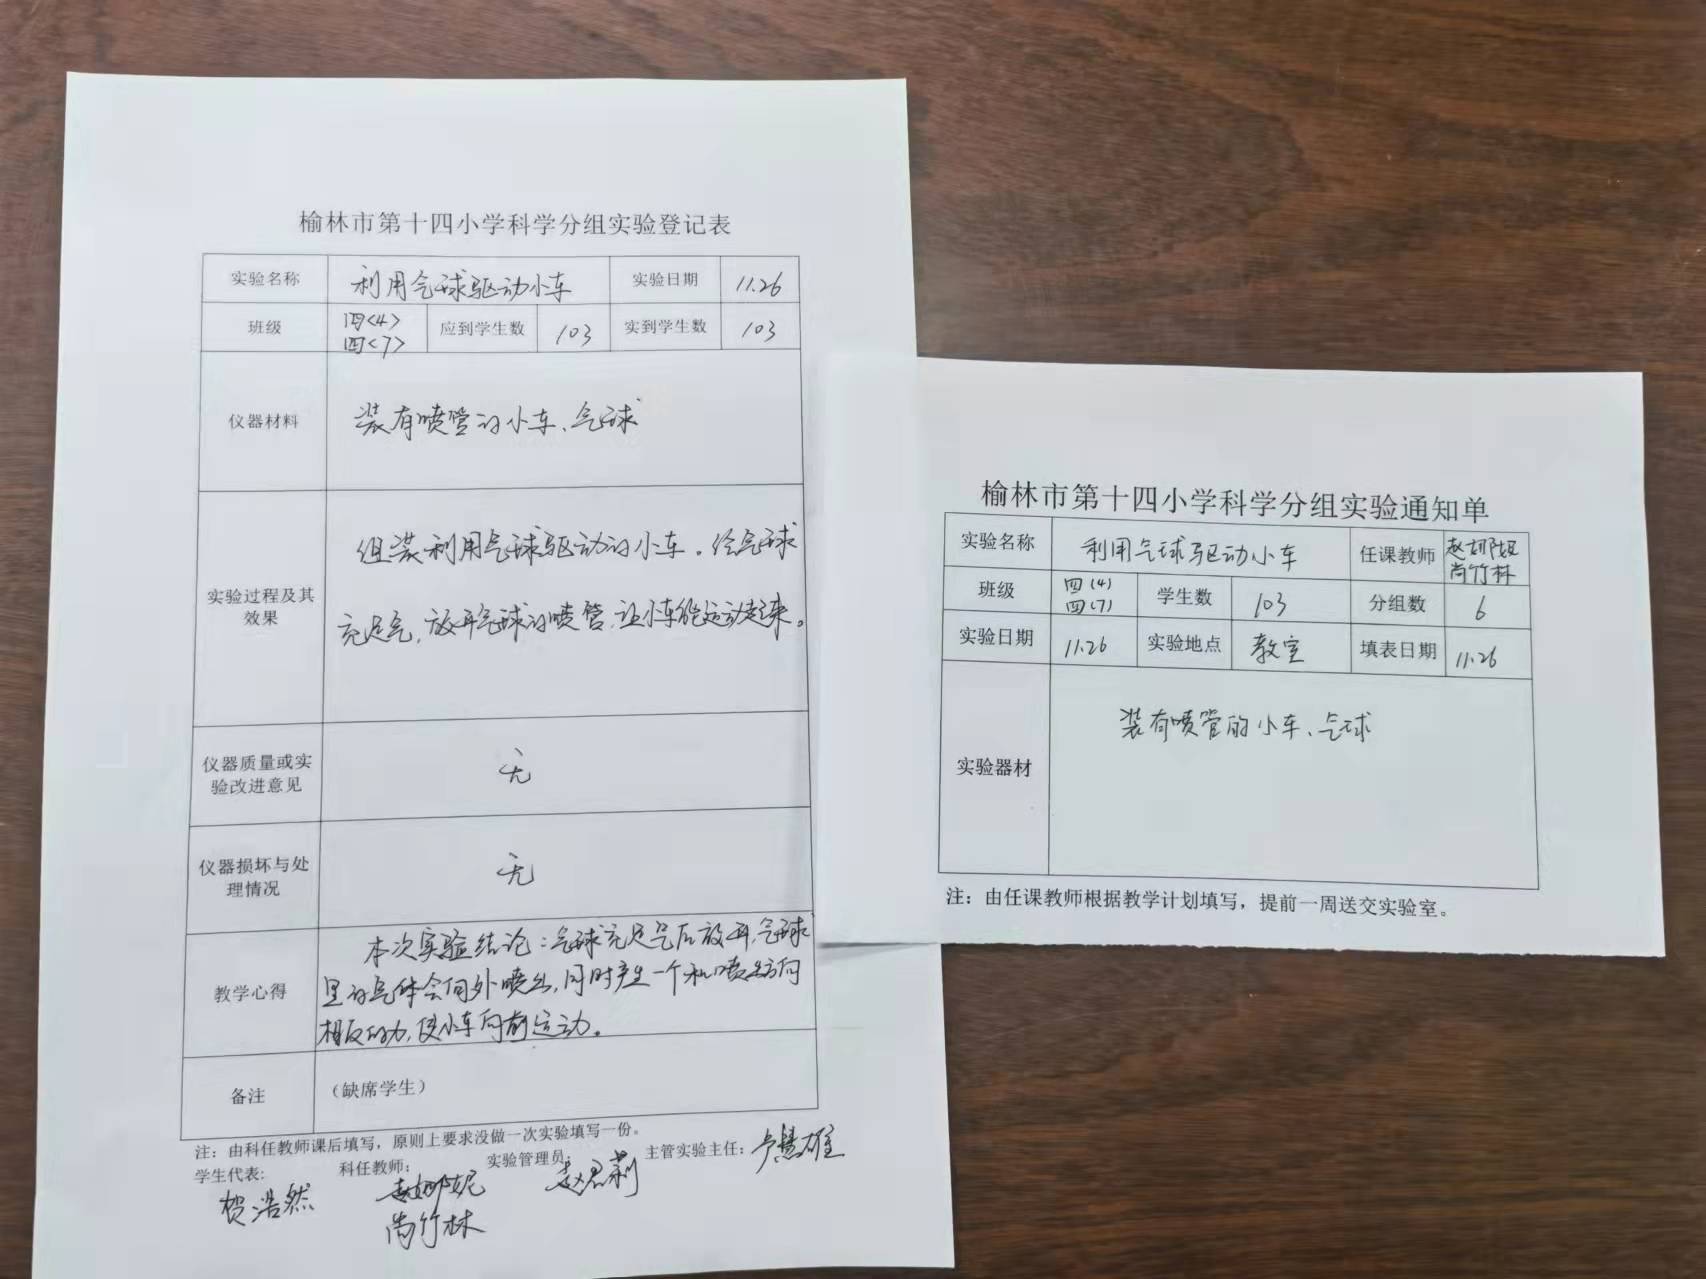 榆林市第十四小学科学分组实验登记表
实验名称 利用气球驱动小车 实验日期 11.26
班级 四<4> 四<7> 应到学生数 103 实到学生数 103
仪器材料 装有喷管的小车、气球
实验过程及其效果
组装利用气球驱动的小车。给气球
充足气,放开气球的喷管,让小车能运动起来。
仪器质量或实验改进意见 无
仪器损坏与处理情况 无
教学心得
本次实验结论:气球充足气后放开,气球
里的气体会向外喷出,同时产生一个和喷出方向
相反的力,使小车向前运动。
备注 (缺席学生)
注:由科任教师课后填写,原则上要求没做一次实验填写一份。
学生代表: 科任教师: 实验管理员: 主管实验主任:
贺浩然 赵娜妮
尚竹林
榆林市第十四小学科学分组实验通知单
实验名称 利用气球驱动小车 任课教师 赵娜妮 尚竹林
班级 四(4) 四(7) 学生数 103 分组数 6
实验日期 11.26 实验地点 教室 填表日期 11.26
实验器材 装有喷管的小车、气球
注:由任课教师根据教学计划填写,提前一周送交实验室。